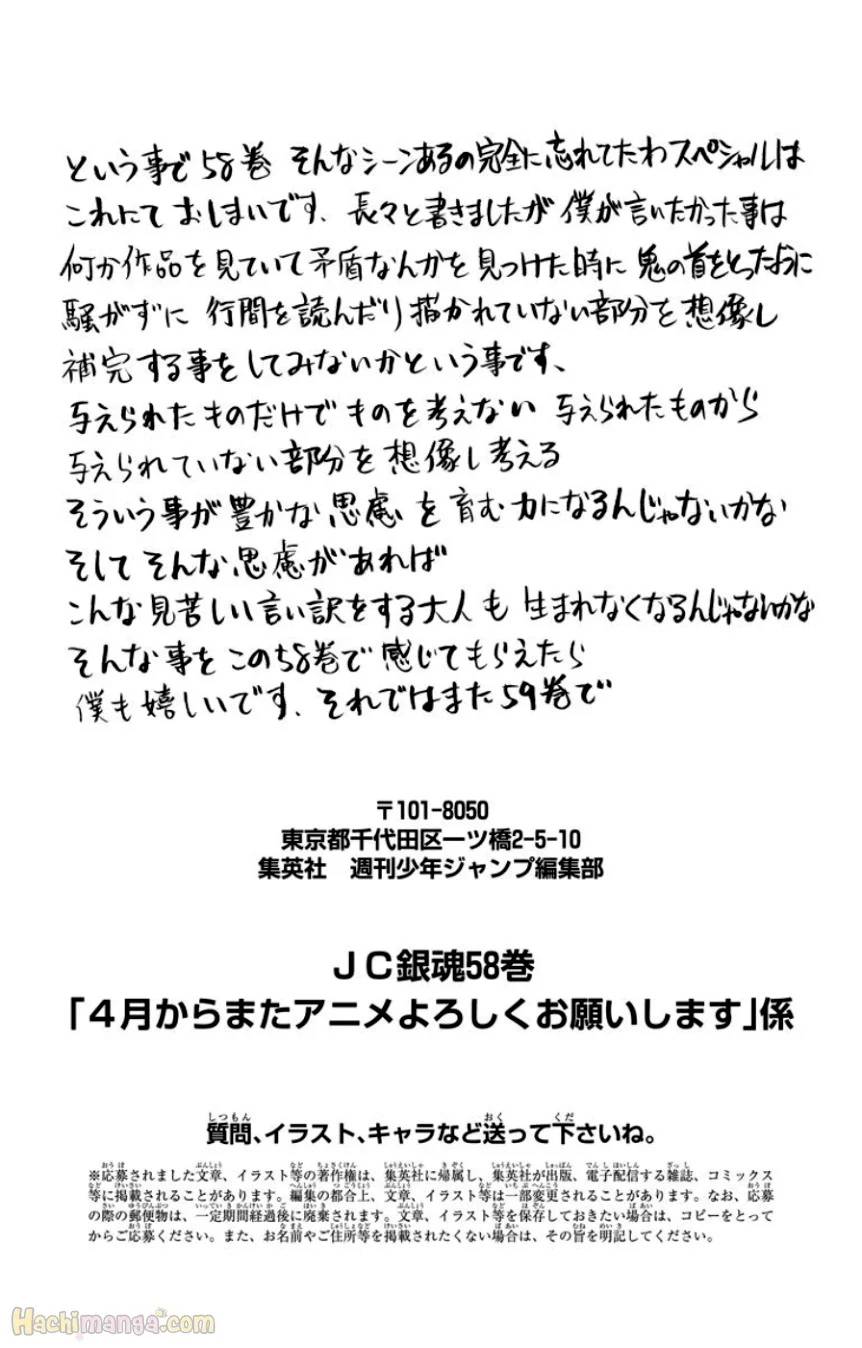 という事で58巻 そんなシーンあるの完全に忘れてたわスペシャルは
これにて おしまいです、長々と書きましたが 僕が言いたかった事は
何か作品を見ていて矛盾なんかを見つけた時に 鬼の首をとったように
騒がずに 行間を読んだり描かれていない部分を想像し
補完する事をしてみないかという事です、
与えられたものだけで ものを考えない 与えられたものから
与えられていない部分を想像し考える
そういう事が豊かな思慮を育む力になるんじゃないかな
そして そんな思慮があれば
こんな見苦しい言い訳をする大人も 生まれなくなるんじゃないかな
そんな事をこの58巻で感じてもらえたら
僕も嬉しいです、それではまた59巻で
〒101-8050
東京都千代田区一ツ橋2-5-10
集英社　週刊少年ジャンプ編集部
ＪＣ銀魂58巻
「４月からまたアニメよろしくお願いします」係
質問、イラスト、キャラなど送って下さいね。
※応募されました文章、イラスト等の著作権は、集英社に帰属し、集英社が出版、電子配信する雑誌、コミックス
等に掲載されることがあります。編集の都合上、文章、イラスト等は一部変更されることがあります。なお、応募
の際の郵便物は、一定期間経過後に廃棄されます。文章、イラスト等を保存しておきたい場合は、コピーをとって
からご応募ください。また、お名前やご住所等を掲載されたくない場合は、その旨を明記してください。
Hachimanga.com